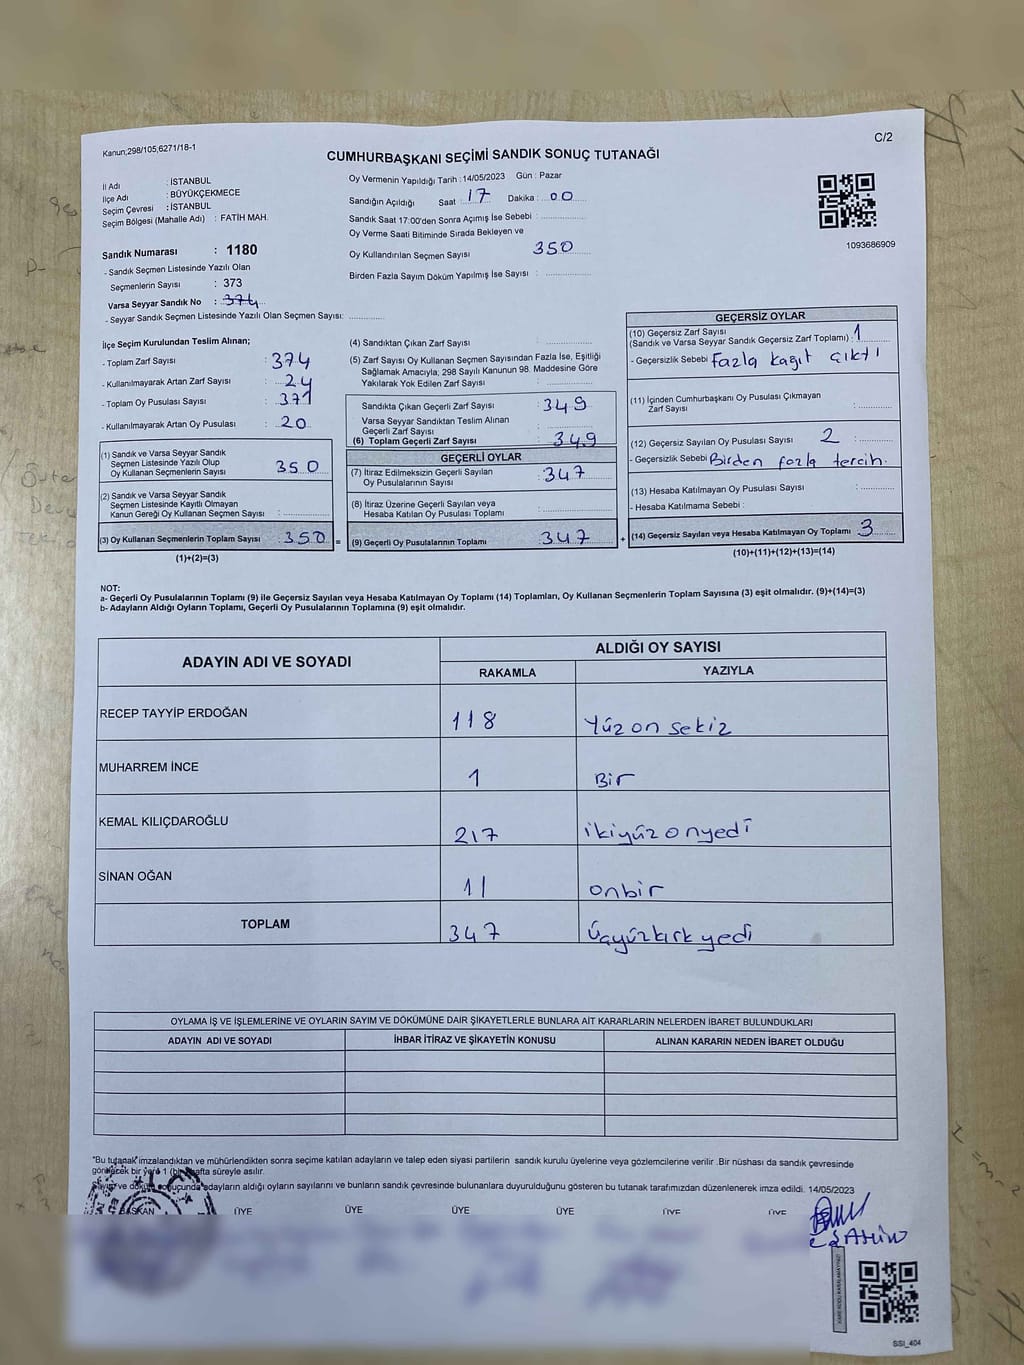 Kanun;298/105,6271/18-1
C/2
CUMHURBAŞKANI SEÇİMİ SANDIK SONUÇ TUTANAĞI
İl Adı : İSTANBUL
İlçe Adı : BÜYÜKÇEKMECE
Seçim Çevresi : İSTANBUL
Seçim Bölgesi (Mahalle Adı) : FATİH MAH.
Sandık Numarası : 1180
- Sandık Seçmen Listesinde Yazılı Olan
Seçmenlerin Sayısı : 373
Varsa Seyyar Sandık No : 374
- Seyyar Sandık Seçmen Listesinde Yazılı Olan Seçmen Sayısı:
Oy Vermenin Yapıldığı Tarih :14/05/2023 Gün : Pazar
Sandığın Açıldığı Saat : 17 Dakika : 00
Sandık Saat 17:00'den Sonra Açımış İse Sebebi :
Oy Verme Saati Bitiminde Sırada Bekleyen ve
Oy Kullandırılan Seçmen Sayısı 350
Birden Fazla Sayım Döküm Yapılmış İse Sayısı :
1093686909
İlçe Seçim Kurulundan Teslim Alınan;
- Toplam Zarf Sayısı : 374
- Kullanılmayarak Artan Zarf Sayısı : 24
- Toplam Oy Pusulası Sayısı : 371
- Kullanılmayarak Artan Oy Pusulası : 20
(1) Sandık ve Varsa Seyyar Sandık
Seçmen Listesinde Yazılı Olup
Oy Kullanan Seçmenlerin Sayısı : 350
(2) Sandık ve Varsa Seyyar Sandık
Seçmen Listesinde Kayıtlı Olmayan
Kanun Gereği Oy Kullanan Seçmen Sayısı :
(3) Oy Kullanan Seçmenlerin Toplam Sayısı : 350 =
(1)+(2)=(3)
(4) Sandıktan Çıkan Zarf Sayısı :
(5) Zarf Sayısı Oy Kullanan Seçmen Sayısından Fazla İse, Eşitliği
Sağlamak Amacıyla; 298 Sayılı Kanunun 98. Maddesine Göre
Yakılarak Yok Edilen Zarf Sayısı :
Sandıkta Çıkan Geçerli Zarf Sayısı : 349
Varsa Seyyar Sandıktan Teslim Alınan
Geçerli Zarf Sayısı :
(6) Toplam Geçerli Zarf Sayısı : 349
GEÇERLİ OYLAR
(7) İtiraz Edilmeksizin Geçerli Sayılan
Oy Pusulalarının Sayısı : 347
(8) İtiraz Üzerine Geçerli Sayılan veya
Hesaba Katılan Oy Pusulası Toplamı :
(9) Geçerli Oy Pusulalarının Toplamı : 347 +
GEÇERSİZ OYLAR
(10) Geçersiz Zarf Sayısı
(Sandık ve Varsa Seyyar Sandık Geçersiz Zarf Toplamı) : 1
- Geçersizlik Sebebi : Fazla kağıt çıktı
(11) İçinden Cumhurbaşkanı Oy Pusulası Çıkmayan
Zarf Sayısı :
(12) Geçersiz Sayılan Oy Pusulası Sayısı : 2
- Geçersizlik Sebebi : Birden fazla tercih.
(13) Hesaba Katılmayan Oy Pusulası Sayısı :
- Hesaba Katılmama Sebebi :
(14) Geçersiz Sayılan veya Hesaba Katılmayan Oy Toplamı : 3
(10)+(11)+(12)+(13)=(14)
NOT:
a- Geçerli Oy Pusulalarının Toplamı (9) ile Geçersiz Sayılan veya Hesaba Katılmayan Oy Toplamı (14) Toplamları, Oy Kullanan Seçmenlerin Toplam Sayısına (3) eşit olmalıdır. (9)+(14)=(3)
b- Adayların Aldığı Oyların Toplamı, Geçerli Oy Pusulalarının Toplamına (9) eşit olmalıdır.
ADAYIN ADI VE SOYADI ALDIĞI OY SAYISI
RAKAMLA YAZIYLA
RECEP TAYYİP ERDOĞAN 118 Yüz on sekiz
MUHARREM İNCE 1 Bir
KEMAL KILIÇDAROĞLU 217 ikiyüz onyedi
SİNAN OĞAN 11 onbir
TOPLAM 347 Üçyüzkırk yedi
OYLAMA İŞ VE İŞLEMLERİNE VE OYLARIN SAYIM VE DÖKÜMÜNE DAİR ŞİKAYETLERLE BUNLARA AİT KARARLARIN NELERDEN İBARET BULUNDUKLARI
ADAYIN ADI VE SOYADI İHBAR İTİRAZ VE ŞİKAYETİN KONUSU ALINAN KARARIN NEDEN İBARET OLDUĞU
"Bu tutanak imzalandıktan ve mühürlendikten sonra seçime katılan adayların ve talep eden siyasi partilerin sandık kurulu üyelerine veya gözlemcilerine verilir .Bir nüshası da sandık çevresinde
görülecek bir yere 1 (bir) hafta süreyle asılır.
Sayım ve döküm sonucunda adayların aldığı oyların sayılarını ve bunların sandık çevresinde bulunanlara duyurulduğunu gösteren bu tutanak tarafımızdan düzenlenerek imza edildi. 14/05/2023
BAŞKAN ÜYE ÜYE ÜYE ÜYE ÜYE ÜYE
SSI_404